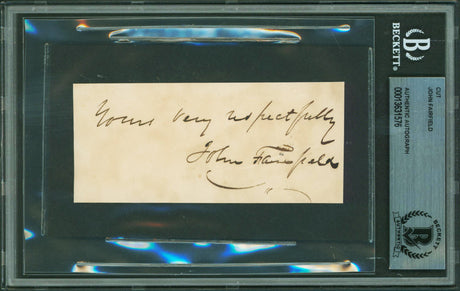 Yours very respectfully
John Fairfield
BECKETT
CUT
JOHN FAIRFIELD
AUTHENTIC AUTOGRAPH
00013631576
BECKETT
AUTHENTICATED